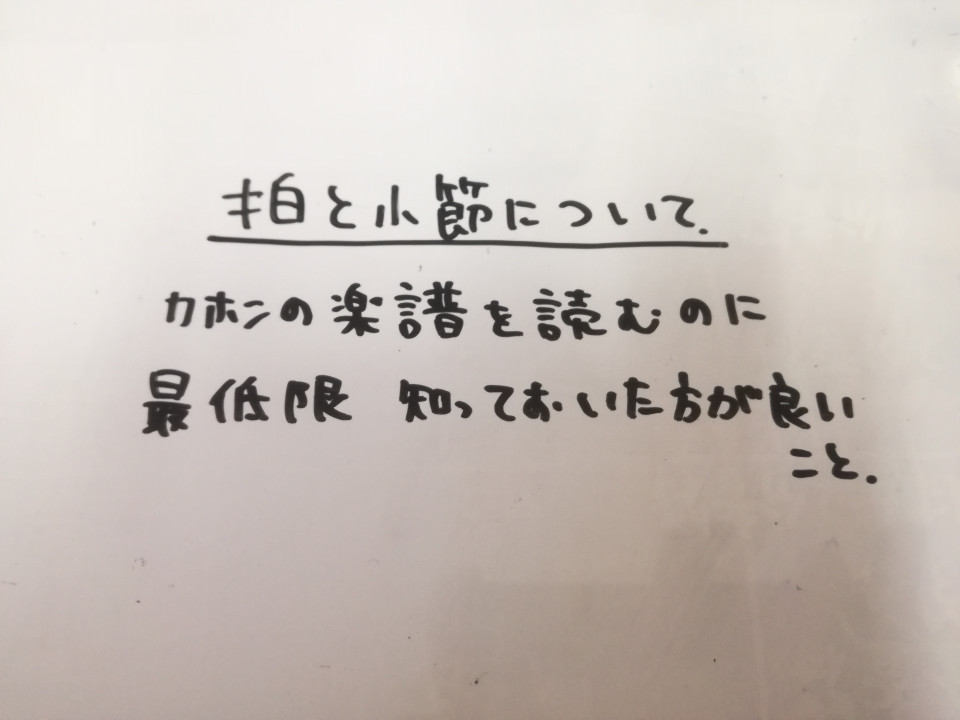 拍と小節について.
カホンの楽譜を読むのに
最低限 知っておいた方が良い
こと.